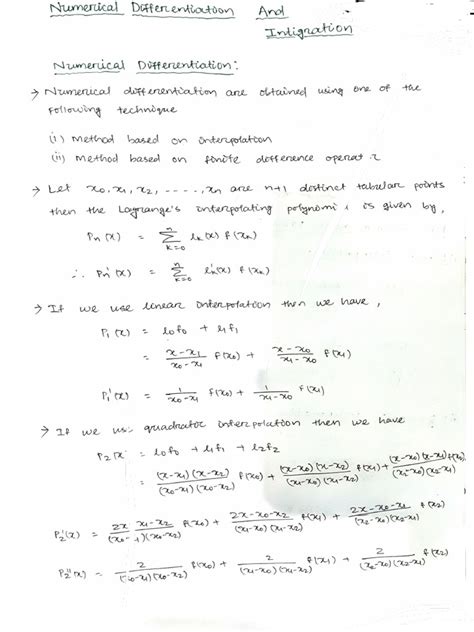 Numerical Differentiation And
Intigration
Numerical Differentiation:
→ Numerical differentiation are obtained using one of the
following technique
(i) Method based on interpolation
(ii) Method based on finite difference operat r
→ Let x₀, x₁, x₂, ....., xₙ are n+1 distinct tabular points
then the Lagrange's interpolating polynomi l is given by,
Pₙ(x) = Σₖ₌₀ⁿ lₖ(x) f(xₖ)
∴ Pₙ'(x) = Σₖ₌₀ⁿ lₖ'(x) f(xₖ)
→ If we use linear interpolation then we have,
P₁(x) = l₀f₀ + l₁f₁
= (x-x₁)/(x₀-x₁) f(x₀) + (x-x₀)/(x₁-x₀) f(x₁)
P₁'(x) = 1/(x₀-x₁) f(x₀) + 1/(x₁-x₀) f(x₁)
→ If we us quadratic interpolation then we have
P₂ x = l₀f₀ + l₁f₁ + l₂f₂
= (x-x₁)(x-x₂)/(x₀-x₁)(x₀-x₂) f(x₀) + (x-x₀)(x-x₂)/(x₁-x₀)(x₁-x₂) f(x₁) + (x-x₀)(x-x₁)f(x₂)/(x₂-x₀)(x₂-x₁)
P₂'(x) = 2x x₁-x₂/(x₀- 1)(x₀-x₂) f(x₀) + 2x-x₀-x₂/(x₁-x₀)(x₁-x₂) f(x₁) + 2x-x₀-x₁/(x₂-x₀)(x₂-x₁) f(x₂)
P₂''(x) = 2/(x₀-x₁)(x₀-x₂) f(x₀) + 2/(x₁-x₀)(x₁-x₂) f(x₁) + 2/(x₂-x₀)(x₂-x₁) f(x₂)